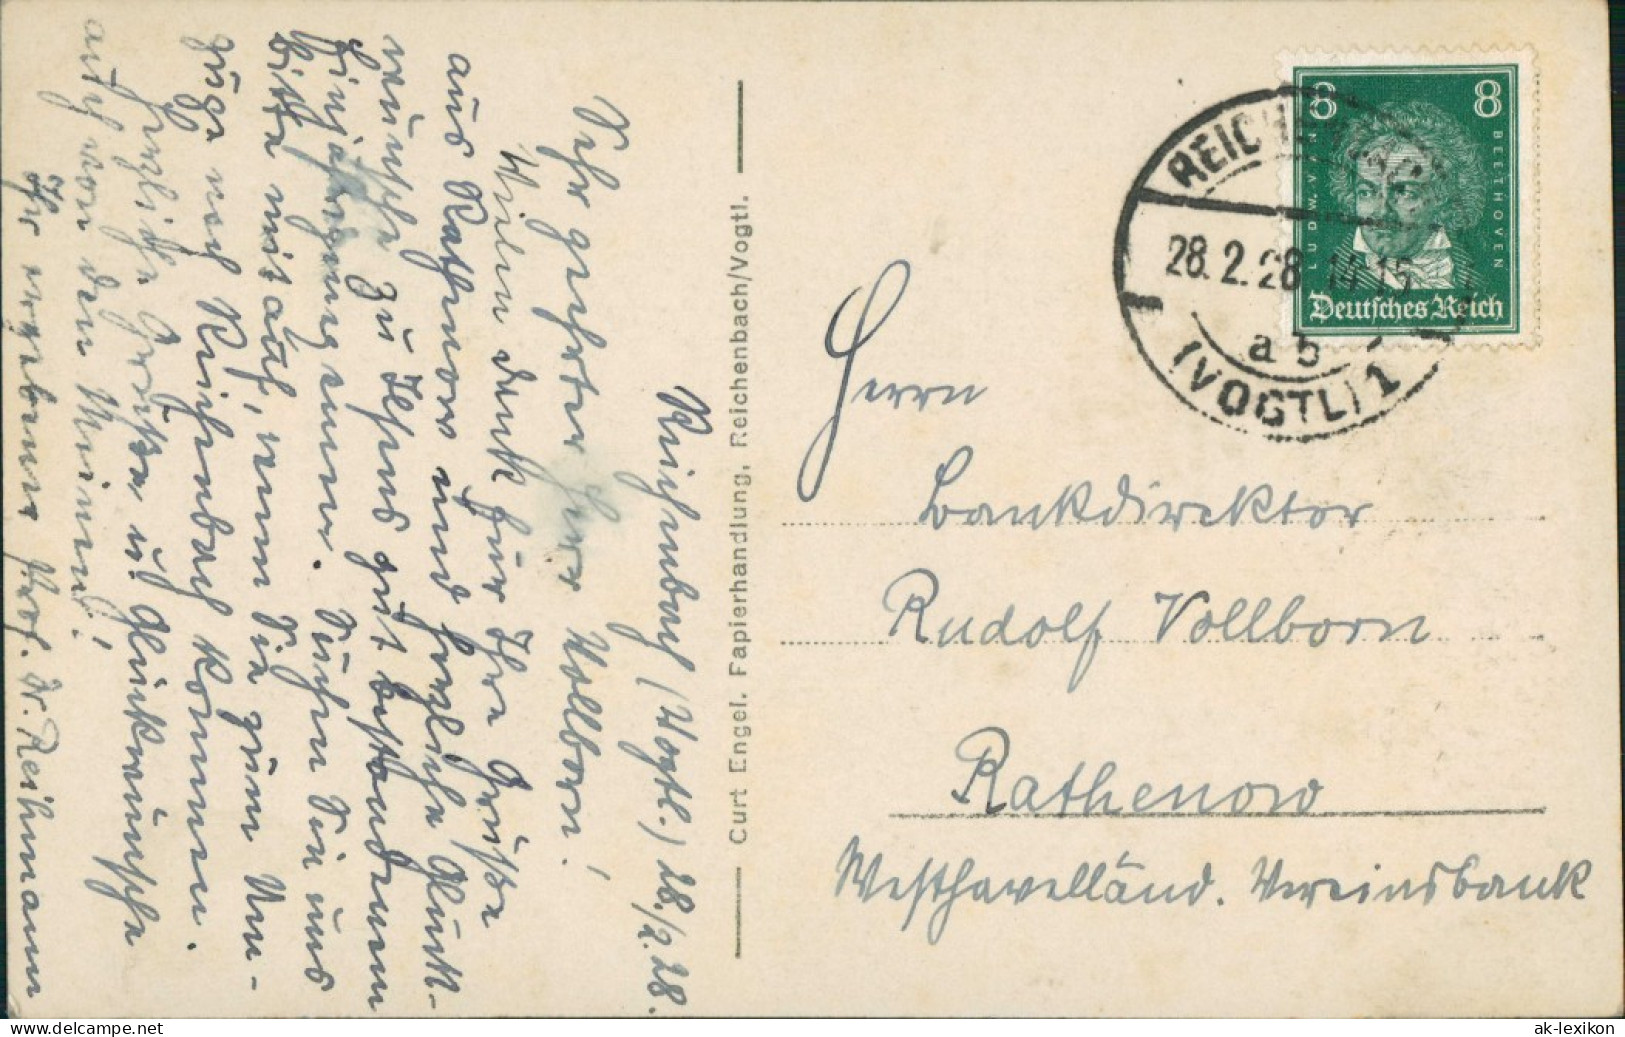 Reichenbach (Vogtl.) 28./2.28.
Sehr geehrter Herr Vollborn!
Vielen Dank für Ihre Grüße
aus Rathenow und herzliche Glück-
wünsche zu Ihrem gut bestandenen
Suchen Sie uns
bitte mit auf, wenn Sie zum
nach Reichenbach kommen.
Herzliche Grüße u. Glückwünsche
auch von den Meinen!
Ihr ergebener Prof. Dr. Reihmann
Curt Engel. Papierhandlung, Reichenbach/Vogtl.
8 8
LUDW. VAN BEETHOVEN
Deutsches Reich
REICHENBACH
28.2.28 14-15
a b
(VOGTL) 1
Herrn
Bankdirektor
Rudolf Vollborn
Rathenow
Westhavelländ. Vereinsbank
delcampe.net
ak-lexikon